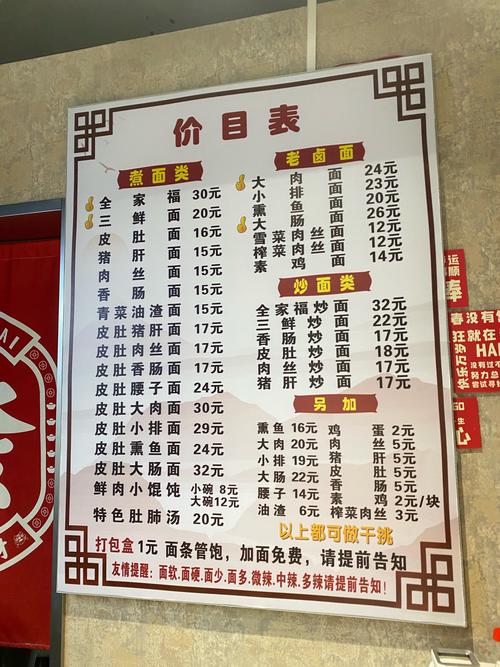 价目表
煮面类
全家福 30元
三鲜面 20元
皮肚面 16元
猪肝面 15元
肉丝面 15元
香肠面 15元
青菜油渣面 15元
皮肚猪肝面 17元
皮肚肉丝面 17元
皮肚香肠面 17元
皮肚腰子面 24元
皮肚大肉面 30元
皮肚小排面 29元
皮肚熏鱼面 24元
皮肚大肠面 32元
鲜肉小馄饨 小碗 8元
大碗12元
特色肚肺汤 20元
老卤面
大肉面 24元
小排面 23元
熏鱼面 20元
大肠面 26元
雪菜肉丝面 12元
榨菜肉丝面 12元
素鸡面 14元
炒面类
全家福炒面 32元
三鲜炒面 22元
香肠炒面 17元
皮肚炒面 18元
肉丝炒面 17元
猪肝炒面 17元
另加
熏鱼 16元 鸡蛋 2元
大肉 20元 肉丝 5元
小排 19元 猪肝 5元
大肠 22元 皮肚 5元
腰子 14元 香肠 5元
油渣 6元 素鸡 2元/块
榨菜肉丝 3元
以上都可做干挑
打包盒1元 面条管饱，加面免费，请提前告知
友情提醒：面软.面硬.面少.面多.微辣.中辣.多辣请提前告知！